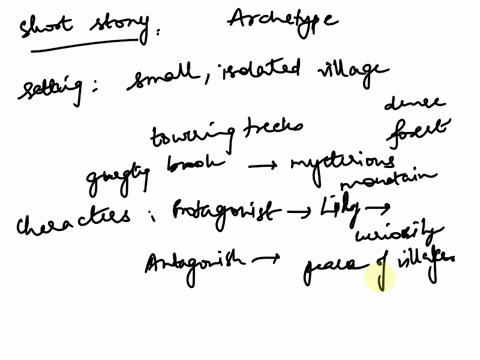 short story. Archetype
setting: small, isolated village
dense
towering trees forest
brook → mysterious
mountain
characters: Protagonist → Lily →
curiosity
Antagonish → peace of villages